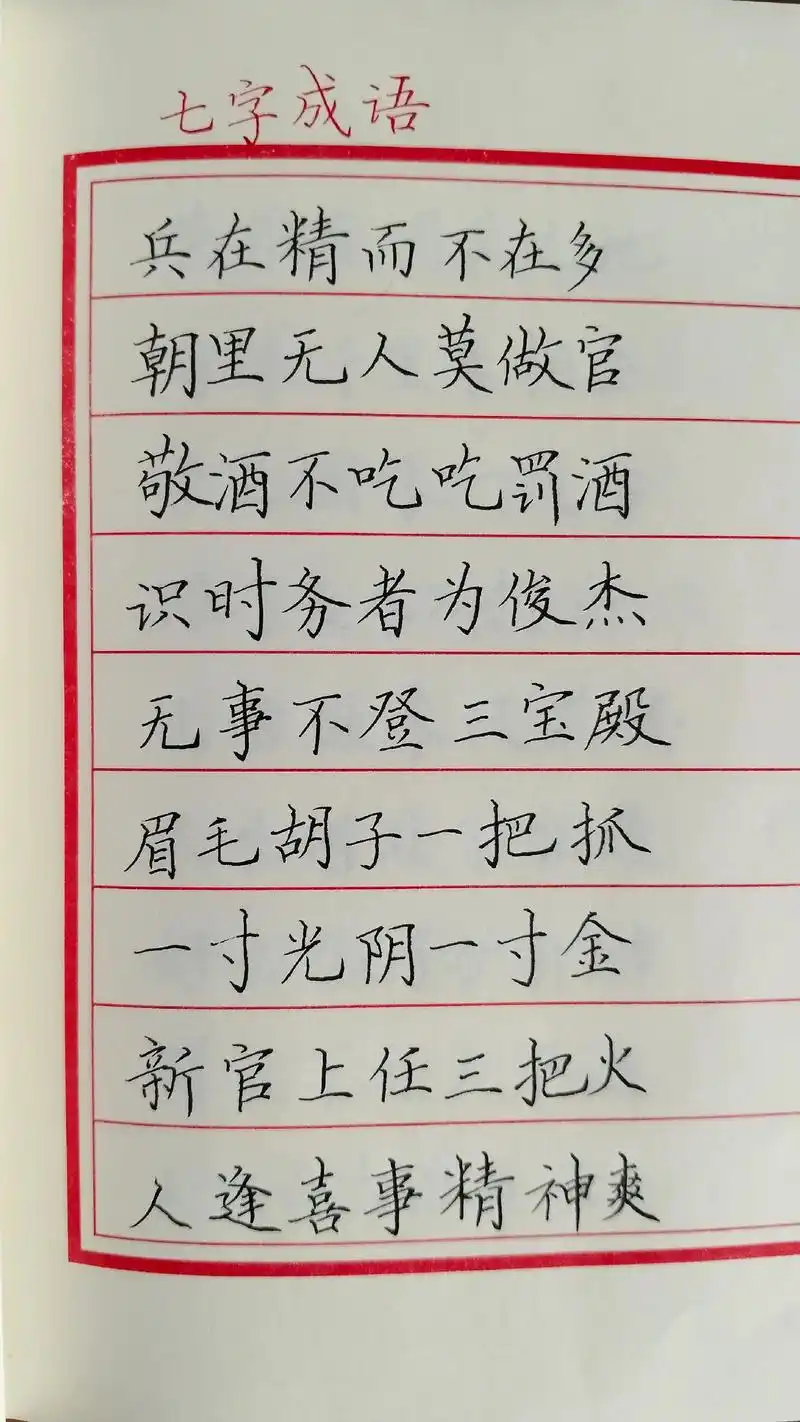 七字成语
兵在精而不在多
朝里无人莫做官
敬酒不吃吃罚酒
识时务者为俊杰
无事不登三宝殿
眉毛胡子一把抓
一寸光阴一寸金
新官上任三把火
人逢喜事精神爽